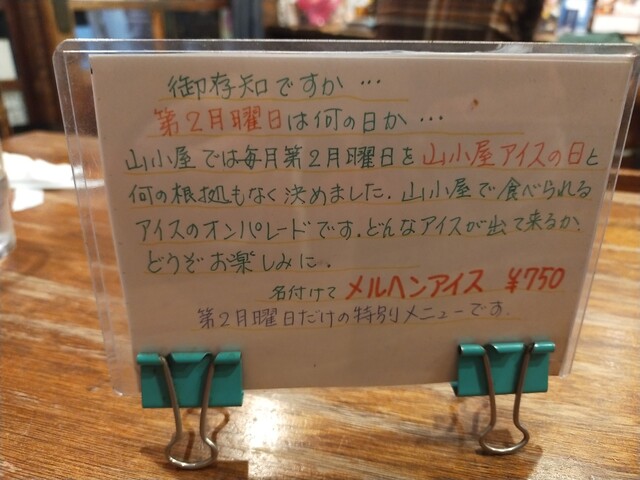 御存知ですか…
第2月曜日は何の日か…
山小屋では毎月第2月曜日を山小屋アイスの日と
何の根拠もなく決めました.山小屋で食べられる
アイスのオンパレードです.どんなアイスが出て来るか.
どうぞお楽しみに.
名付けて メルヘンアイス ¥750
第2月曜日だけの特別メニューです.